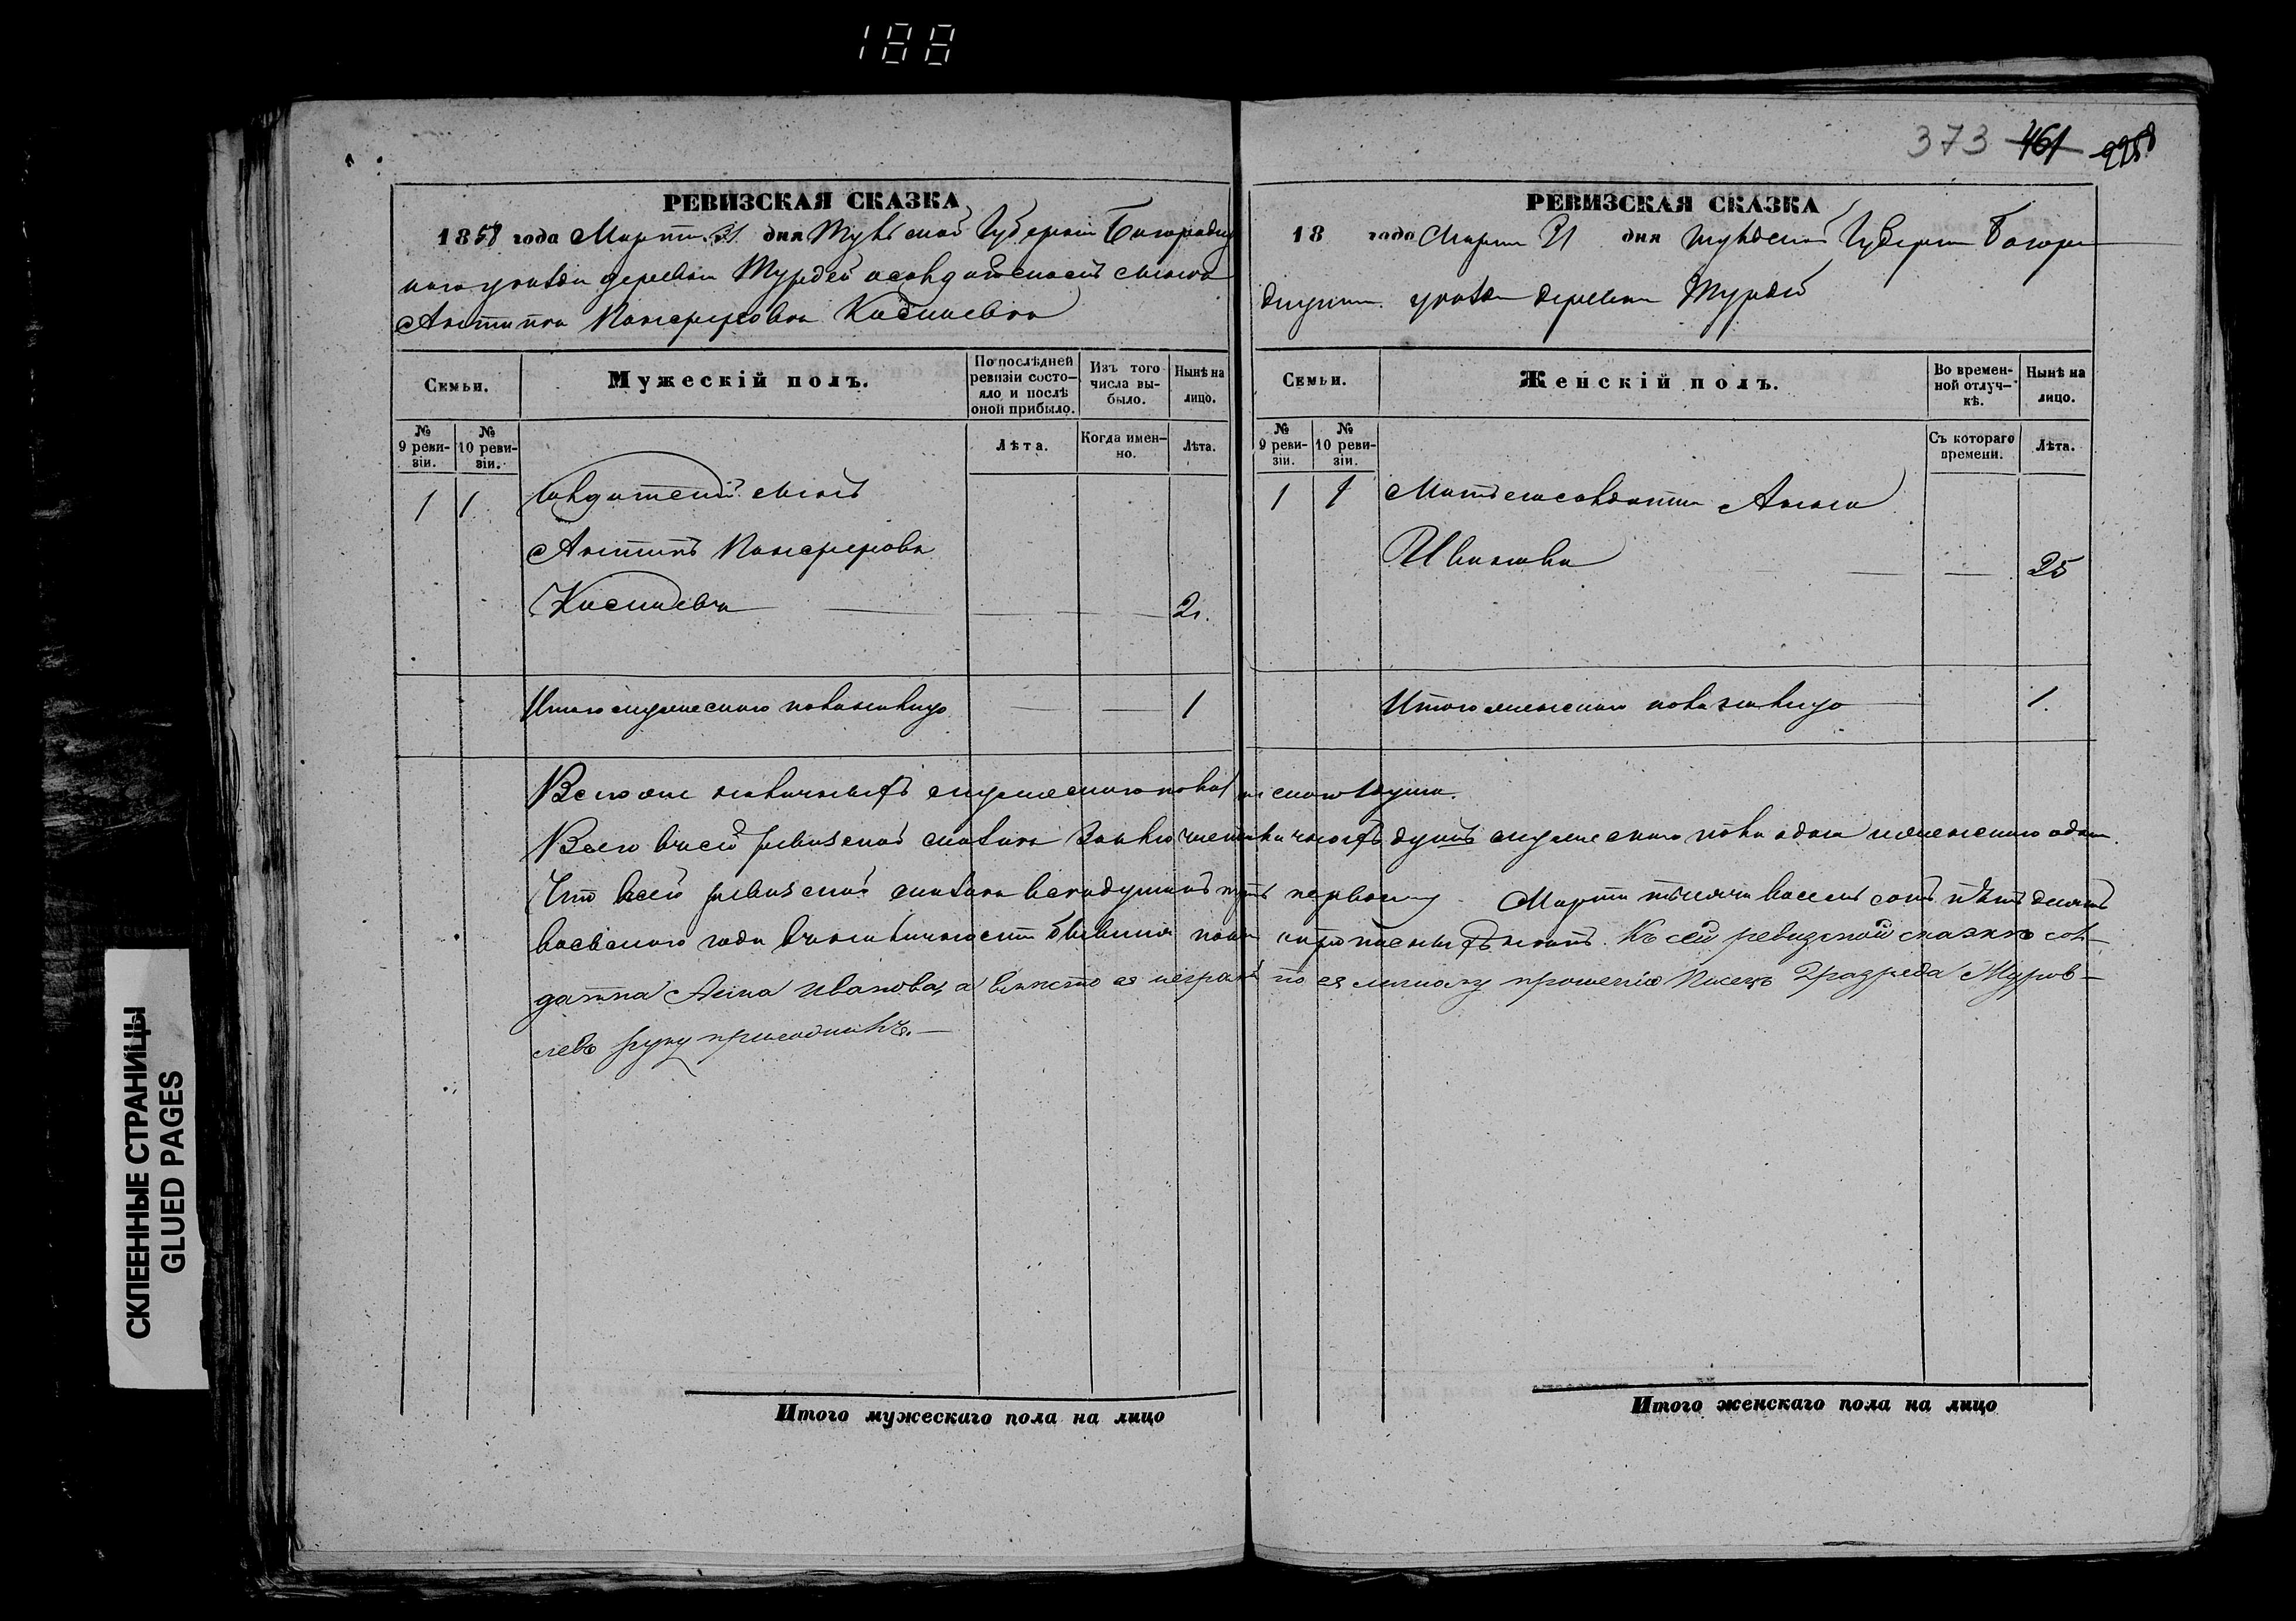 188
373 461 2258
РЕВИЗСКАЯ СКАЗКА
1858 года Марта 31 дня Тульской Губернiи Богородиц
каго уѣзда деревни Турдей о солдатскомъ сынѣ
Антипѣ Панферовѣ
Семьи.
Мужескiй полъ.
По послѣдней ревизiи состо-
яло и послѣ оной прибыло.
Изъ того числа вы-
было.
Нынѣ на лицо.
№ 9 реви-
зiи.
№ 10 реви-
зiи.
Лѣта.
Когда имен-
но.
Лѣта.
1 1 Солдатскiй сынъ
Антипъ Панферовъ
2.
Итого мужескаго пола на лицо 1
РЕВИЗСКАЯ СКАЗКА
18 года Марта 31 дня Тульской Губернiи Богоро
дицкаго уѣзда деревни Турдей
Семьи.
Женскiй полъ.
Во времен-
ной отлуч-
кѣ.
Нынѣ на лицо.
№ 9 реви-
зiи.
№ 10 реви-
зiи.
Съ котораго времени.
Лѣта.
1 1 Мать его солдатка Анна
Иванова 25
Итого женскаго пола на лицо 1.
Всего наличныхъ мужескаго пола душа.
Всего в сей ревизской сказке наличныхъ душъ мужескаго пола одна и женскаго одна.
Что в сей ревизской сказке всѣ души по первому Марта тысяча восемь сотъ пятьдесятъ
восьмого года в наличности и прописныхъ нѣтъ. Къ сей ревизской сказкѣ сол-
датка Анна Иванова, а вмѣсто ея неграмотной по ея личному прошенiю Писецъ 2 разряда Журов-
левъ руку приложилъ.
Итого мужескаго пола на лицо
Итого женскаго пола на лицо
СКЛЕЕННЫЕ СТРАНИЦЫ
GLUED PAGES